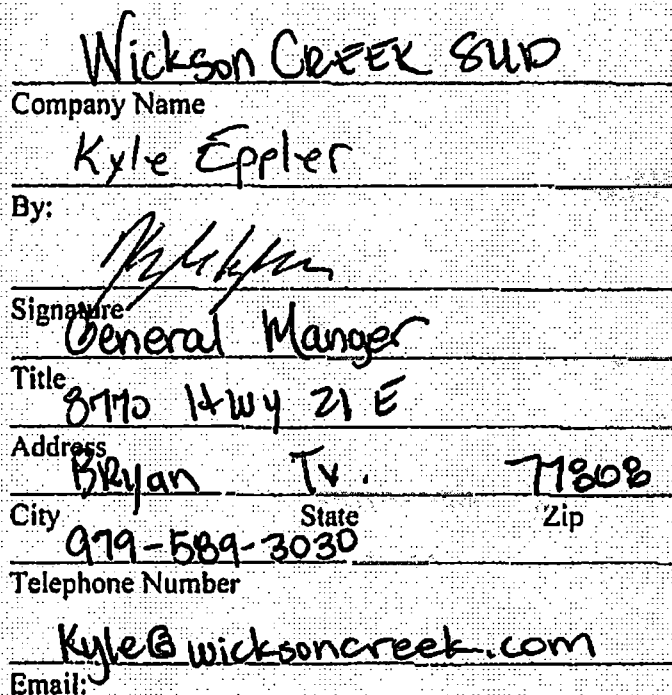 Wickson CREEK SUD
Company Name
Kyle Eppler
By:
Signature
General Manger
Title
8770 HWY 21 E
Address
BRyan Tx. 77808
City State Zip
979-589-3030
Telephone Number
Kyle@wicksoncreek.com
Email: